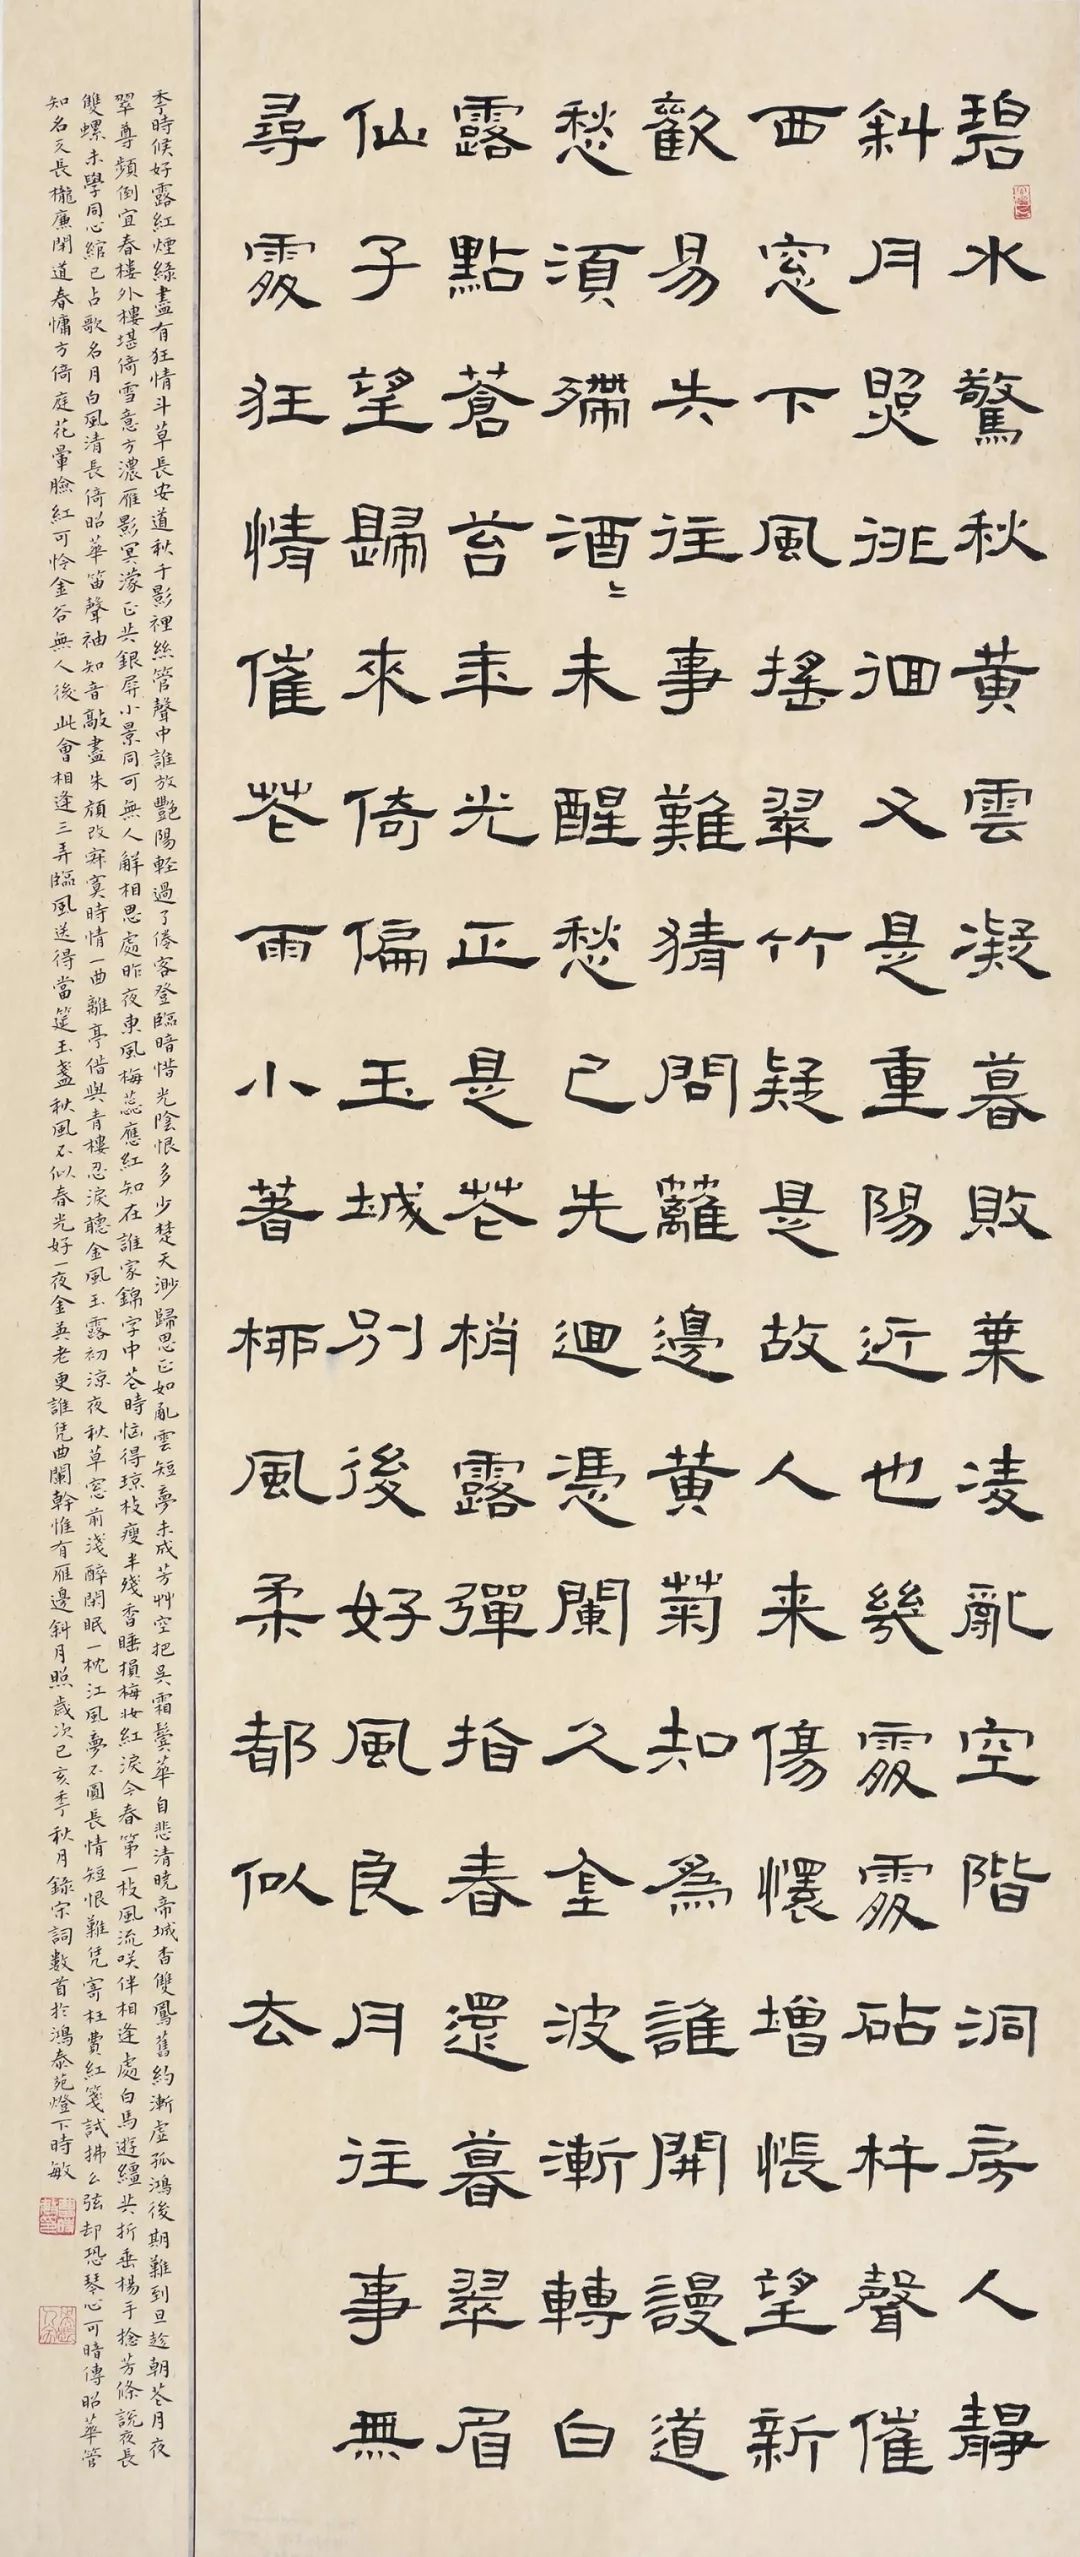 碧水驚秋黃雲凝暮敗葉凌亂空階洞房人靜
斜月照徘徊又是重陽近也幾處處砧杵聲催
西窓下風搖翠竹疑是故人来傷懷增悵望新
歡易失往事難猜問籬邊黃菊知為誰開謾道
愁須殢酒〻未醒愁已先迴憑闌久金波漸轉白
露點蒼苔年光正是花梢露彈指春還暮翠眉
仙子望歸來倚徧玉城別後好風良月往事無
尋處狂情催花雨小著柳風柔都似去
季時候好露紅煙綠盡有狂情斗草長安道秋千影裡絲管聲中誰放艷陽輕過了倦客登臨暗惜光陰恨多少楚天渺歸思正如亂雲短夢未成芳艸空把吳霜鬢華自悲清曉帝城杳雙鳳舊約漸虛孤鴻後期難到旦趁朝花月夜
翠尊頻倒宜春樓外樓堪倚雪意方濃雁影冥濛正共銀屏小景同可無人解相思處昨夜東風梅蕊應紅知在誰家錦字中花時惱得瓊枝瘦半殘香睡損梅妝紅淚今春第一枝風流咲伴相逢處白馬遊繮共折垂楊手捻芳條說夜長
雙螺未學同心綰已占歌名月白風清長倚昭華笛聲袖知音敲盡朱顏改寂寞時情一曲離亭借與青樓忍淚聽金風玉露初涼夜秋草窓前淺醉閑眠一枕江風夢不圓長情短恨難凭寄枉費紅箋試拂么弦却恐琴心可暗傳昭華管
知名久長櫳簾閑道春慵方倚庭花暈臉紅可怜金谷無人後此會相逢三弄臨風送得當筵玉盞秋風不似春光好一夜金英老更誰凭曲闌幹惟有雁邊斜月照歲次己亥季秋月錄宋詞數首於鴻泰苑燈下時敏